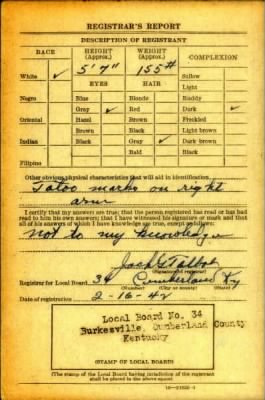 REGISTRAR'S REPORT
DESCRIPTION OF REGISTRANT
RACE HEIGHT (Approx.) WEIGHT (Approx.) COMPLEXION
5' 7" 155#
White ✓ Sallow
EYES HAIR Light
Negro Blue Blonde Ruddy
Gray ✓ Red Dark ✓
Oriental Hazel Brown Freckled
Brown Black Light brown
Indian Black Gray ✓ Dark brown
Bald Black
Filipino
Other obvious physical characteristics that will aid in identification
Tatoo marks on right
arm
I certify that my answers are true; that the person registered has read or has had
read to him his own answers; that I have witnessed his signature or mark and that
all of his answers of which I have knowledge are true, except as follows:
Not to my knowledge
Jack G Talbot
(Signature of registrar)
Registrar for Local Board 34 Cumberland Ky
(Number) (City or county) (State)
Date of registration 2-16-42
Local Board No. 34
Burkesville, Cumberland County
Kentucky
(STAMP OF LOCAL BOARD)
(The stamp of the Local Board having jurisdiction of the registrant
shall be placed in the above space)